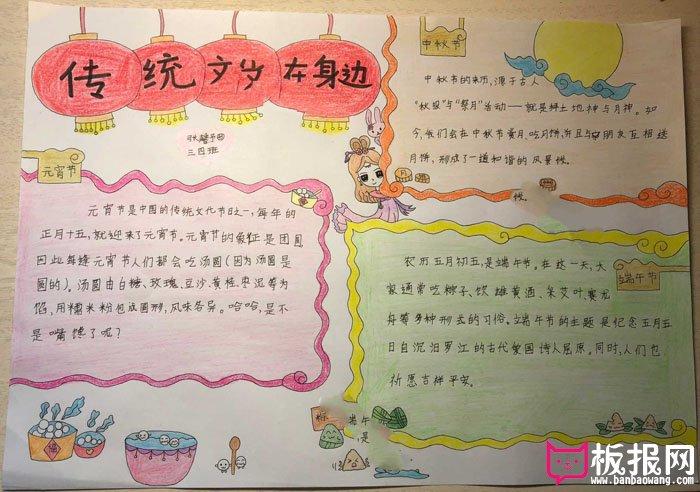 传统文岁在身边
三四班
元宵节
元宵节是中国的传统文化节日之一,每年的
正月十五,就迎来了元宵节。元宵节的象征是团圆
因此每逢元宵节人们都会吃汤圆(因为汤圆是
圆的)。汤圆由白糖、玫瑰、豆沙、黄桂、枣泥等为
馅,用糯米粉包成圆形,风味各异。哈哈,是不
是嘴馋了呢?
中秋节
中秋节的来历,源于古人
“秋报”与“祭月”活动——就是拜土地神与月神。如
今,我们会在中秋节赏月、吃月饼,并且与朋友互相送
月饼,形成了一道和谐的风景
候。
端午节
农历五月初五,是端午节。在这一天,大
家通常吃粽子、饮雄黄酒、朱艾叶、赛龙
舟等多种形式的习俗。端午节的主题是纪念五月五
日自沉汨罗江的古代爱国诗人屈原。同时,人们也
祈愿吉祥平安。
端午
是
福
板报网
www.banbaowang.com